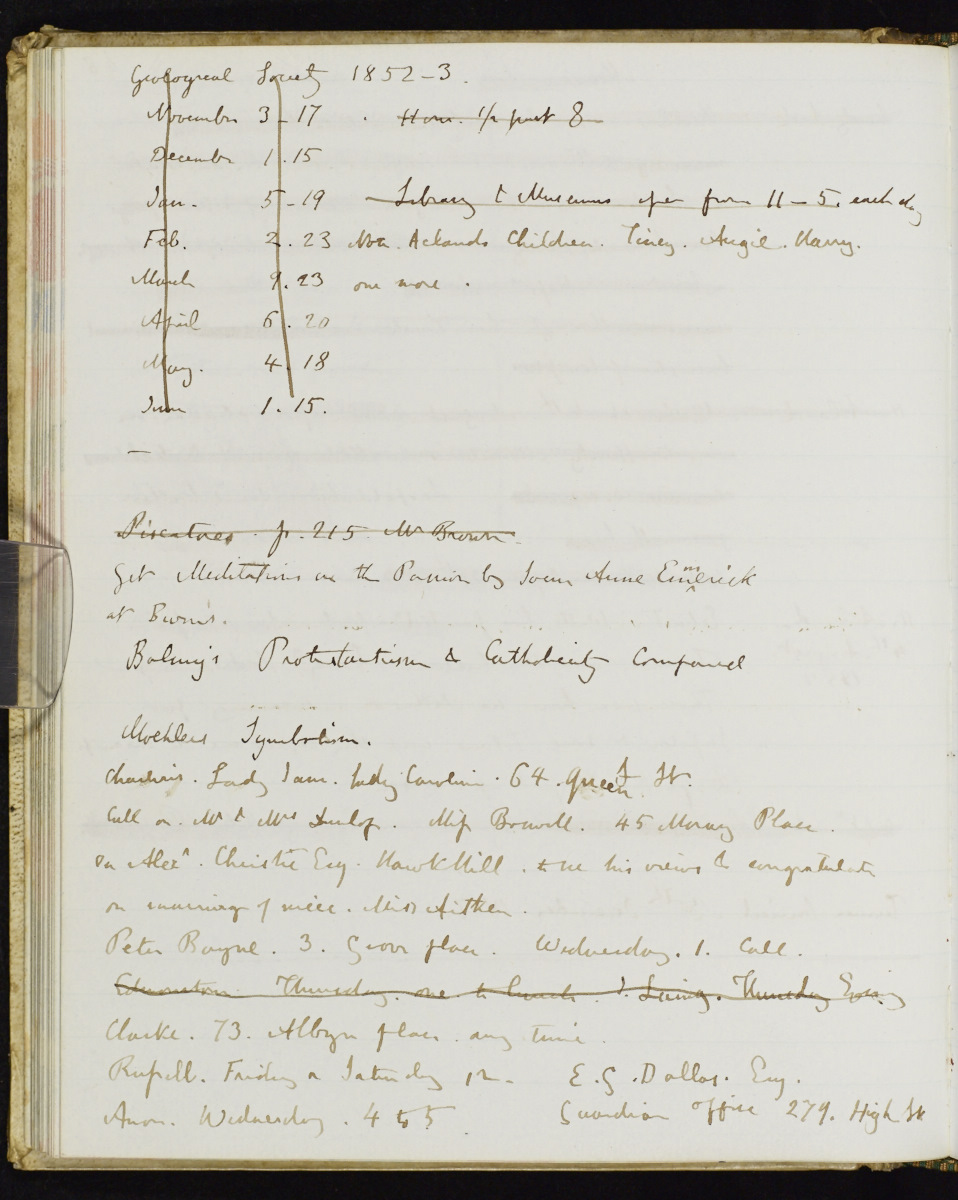 Geological Society 1852-3.
November 3-17 . Hour. 1/2 past 8
December 1.15
Jan. 5-19 - Library & Museums open from 11-5. each day
Feb. 2.23 Mrs. Aclands Children. Tiney. Angie. Harry.
March 9.23 one more.
April 6.20
May. 4.18
June 1.15.
-
Piscatores. p. 215 Mr Brown.
Get Meditations on the Passion by Anne Emmerick
at Burns.
Balmy's Protestantism & Catholicity Compared
Moehlers Symbolism.
Lady Jane. Lady Caroline. 64. Queen St.
Call on Mr & Mrs Dunlop. Miss 45 Moray Place.
on Alexr. Christie Esq. Hawk Hill. & see his views & congratulate
on marriage of niece. Miss Aitken.
Peter Bayne. 3. Grove place. Wednesday. 1. Call.
Edmonston. Thursday. one to lunch. Thursday Evening
Clarke. 73. Albyn place. any time.
Russell. Friday or Saturday E.S. Dallas. Esq.
Anon. Wednesday. 4 to 5 Guardian office 279. High St